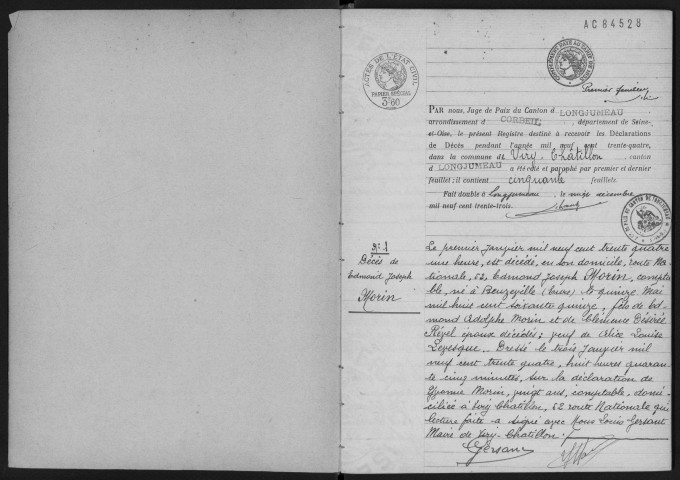 AC84528
ACTES DE L'ETAT CIVIL
PAPIER SPÉCIAL
3f60
Premier feuillet
PAR nous, Juge de Paix du Canton d LONGJUMEAU
arrondissement d CORBEIL, département de Seine-
et-Oise, le présent Registre destiné à recevoir les Déclarations
de Décès pendant l'année mil neuf cent trente-quatre,
dans la commune de Viry-Châtillon, canton
d LONGJUMEAU a été coté et paraphé par premier et dernier
feuillet; il contient cinquante feuillets.
Fait double à Longjumeau, le onze décembre
mil neuf cent trente-trois.
N° 1
Décès de
Edmond Joseph
Morin
Le premier Janvier mil neuf cent trente quatre
une heure, est décédé, en son domicile, route Na-
tionale, 52, Edmond Joseph Morin, compta-
ble, né à Beuzeville (Eure) le quinze Mai
mil huit cent soixante quinze, fils de Ed-
mond Adolphe Morin et de Clémence Désirée
Revel époux décédés; veuf de Alice Louise
Levesque.. Dressé le trois Janvier mil
neuf cent trente quatre, huit heures quaran-
te cinq minutes, sur la déclaration de
Yvonne Morin, vingt ans, comptable, domi-
ciliée à Viry Chatillon, 52 route Nationale qui
lecture faite a signé avec Nous Louis Gersant
Maire de Viry-Chatillon.
Gersant